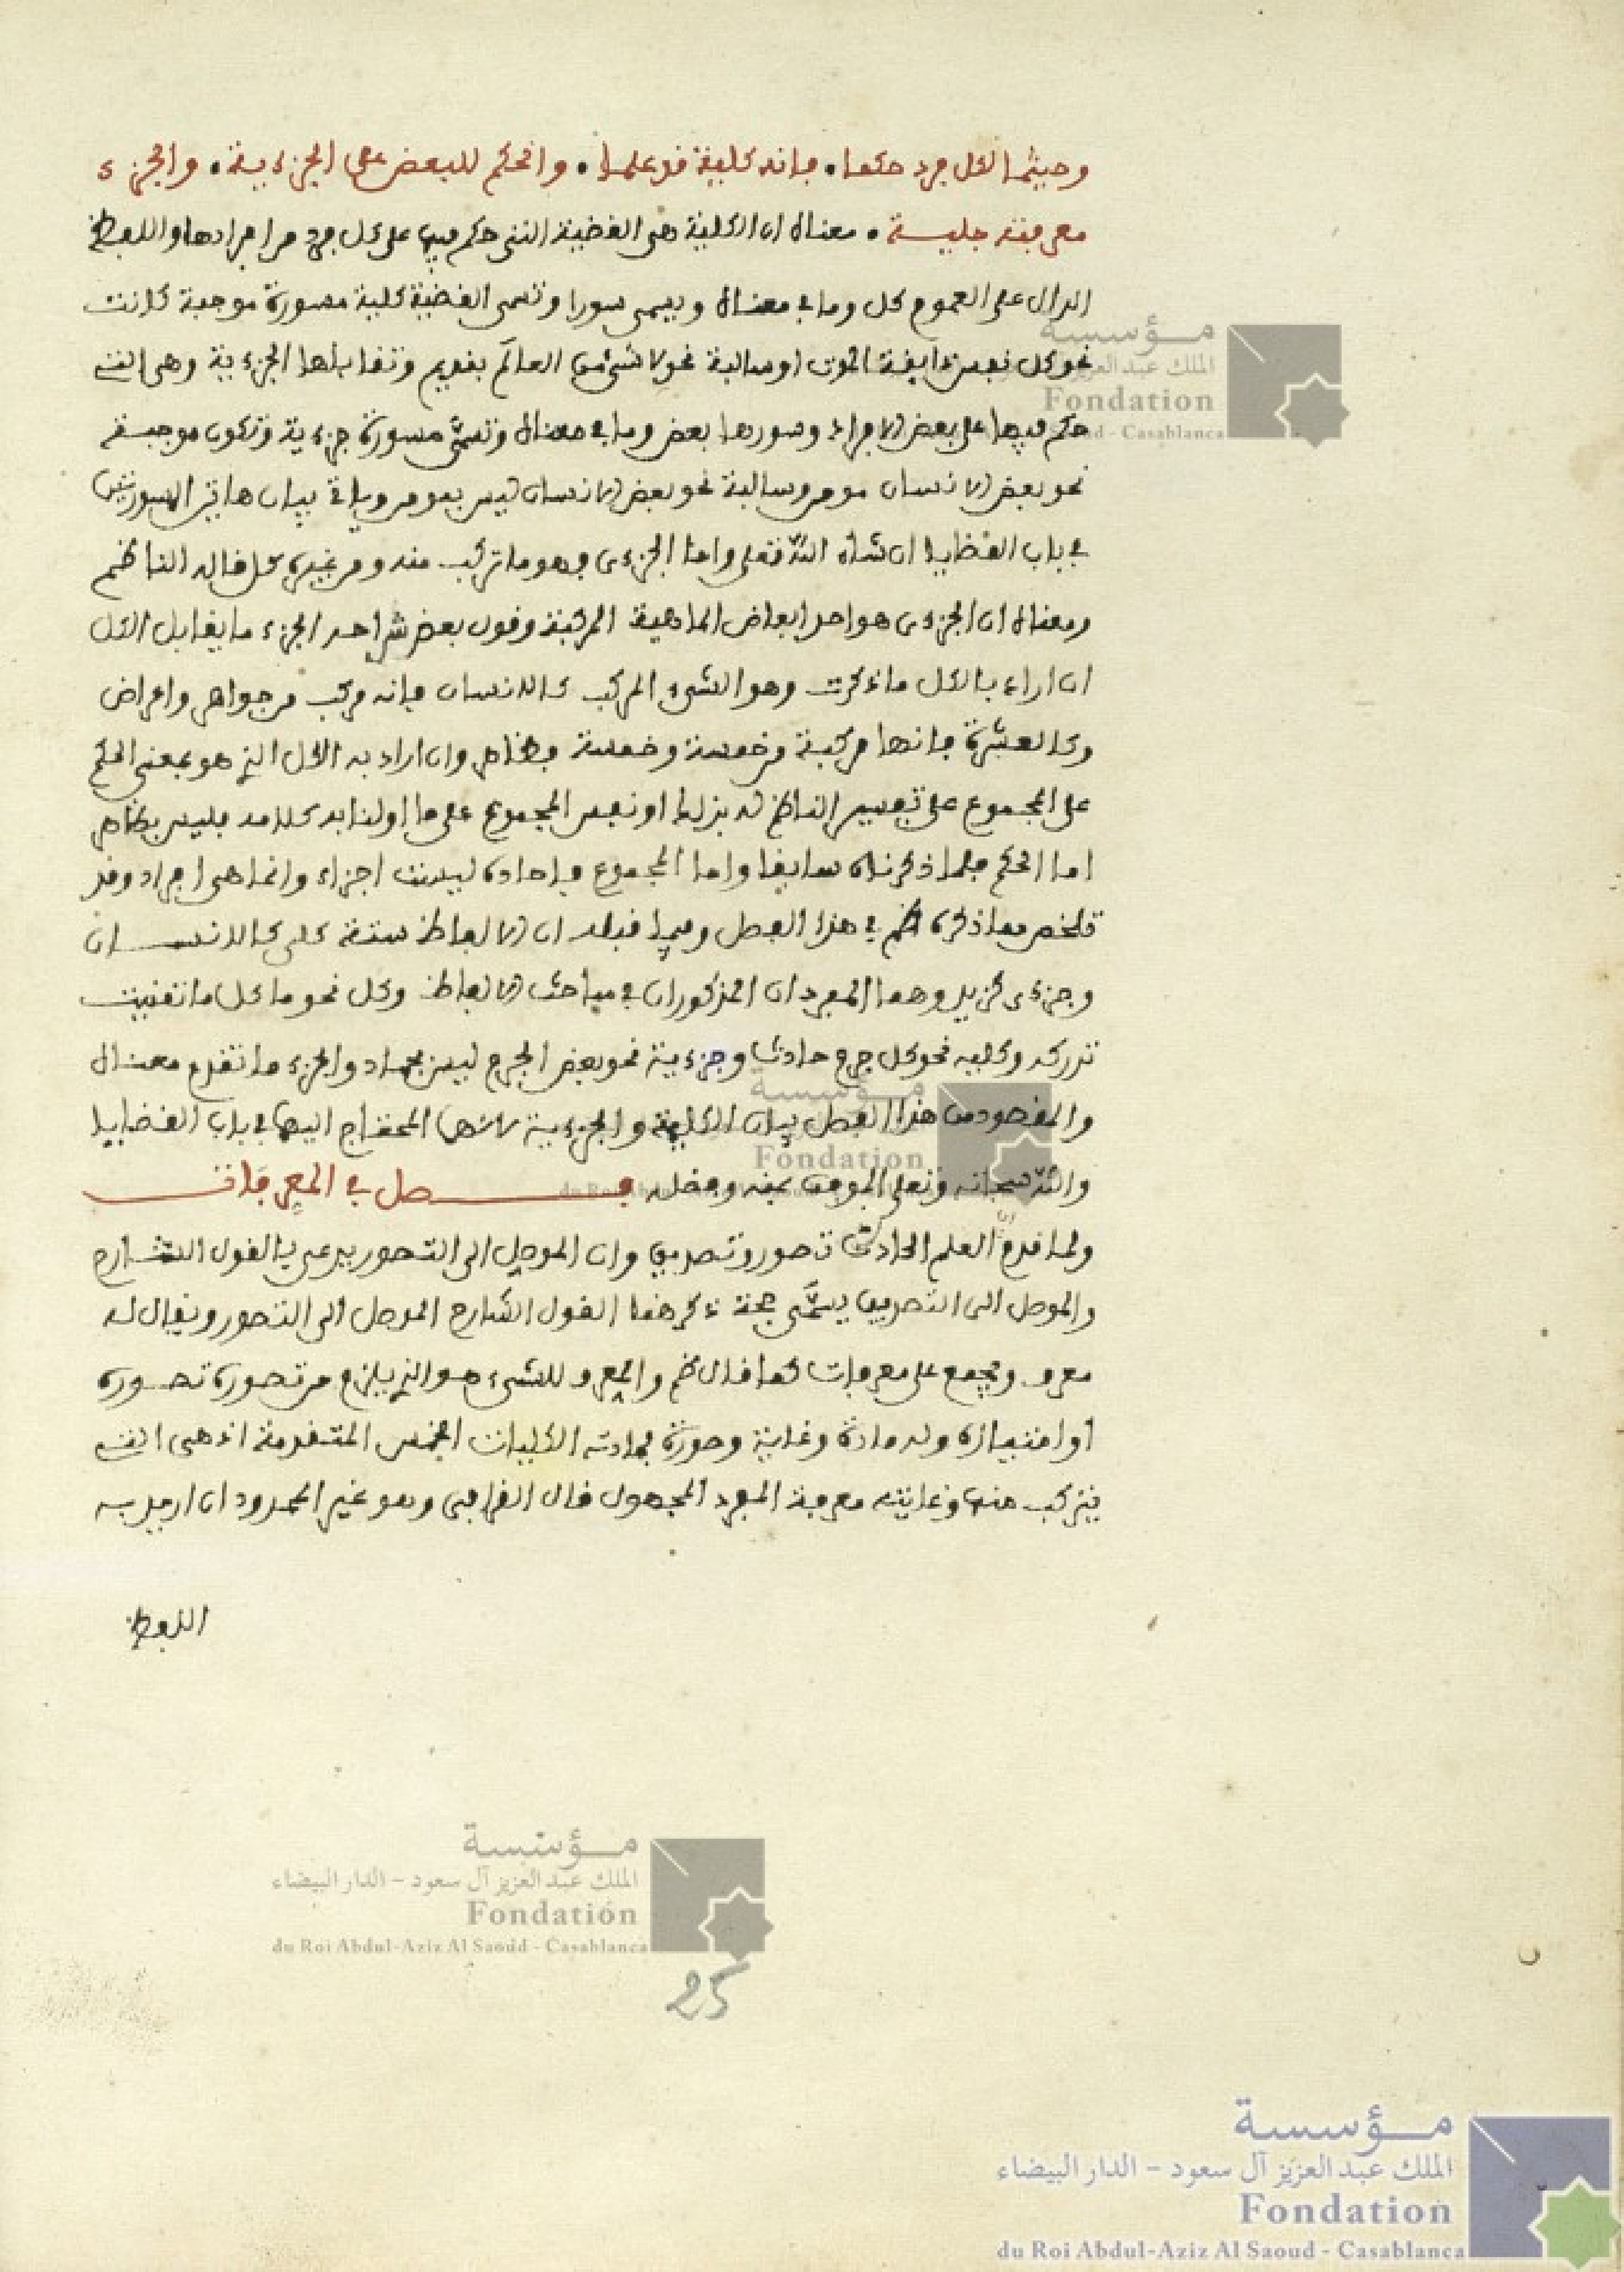 وحيثما الكل فرد حكما . فإنه كلية قد علما . والحكم للبعض على الجزءية . والجزء
معرفته جلية . معناه ان الكلية هى القضية التى حكم فيها على كل فرد من افرادها واللفظ
الدال على العموم كل وما في معناه ويسمى سورا وتسمى القضية كلية مسورة موجبة كانت
نحو كل نفس ذايقة الموت او سالبة نحو لا شىء من العالم بقديم وتقابلها الجزءية وهى التى
حكم فيها على بعض الافراد وسورها بعض وما في معناه وتسمى مسورة جزءية وتكون موجبة
نحو بعض الانسان مومن وسالبة نحو بعض الانسان ليس بمومن وياتي بيان هاتين السورتين
في باب القضايا ان شاء الله تعلى واما الجزءى فهو ما تركب منه ومن غيره كل قاله الناظم
ومعناه ان الجزءى هو احد ابعاض الماهية المركبة وقول بعض شراحه الجزء ما يقابل الكل
ان اراد بالكل ما ذكرت وهو الشىء المركب كالانسان فإنه مركب من جواهر واعراض
وكالعشرة فإنها مركبة من خمسة وخمسة فظاهر وان اراد به الكل الذي هو بمعنى الحكم
على المجموع على تفسير الناظم له بذلك او نفس المجموع على ما اولنا به كلامه فليس بظاهر
اما الحكم فلما ذكرناه سابقا واما المجموع فاحاده ليست اجزاء وانما هى افراد وقد
تلخص مما ذكره ظم في هذا الفصل وفيما قبله ان الالفاظ ستة كلى كالانسان
وجزءى كزيد وهما المفردان المذكوران في مباحث الالفاظ وكل نحو ما كل ما تمنيت
تدركه وكليه نحو كل جرم حادث وجزءية نحو بعض الجرم ليس بجماد والجزء ما تقدم معناه
والمقصود من هذا الفصل بيان الكلية والجزءية لانهما المحتاج اليهما في باب القضايا
والله سبحانه وتعلى الموفق بمنه وفضله فصل في المعرفات
ولما قدم ان العلم الحادث تصور وتصديق وان الموصل الى التصور يدعى بالقول الشارح
والموصل الى التصديق يسمى حجة ذكر هنا القول الشارح الموصل الى التصور ويقال له
معرف ويجمع على معرفات كما قال ظم والمعرف للشىء هو الذي يلزم من تصوره تصوره
او امتيازه وله مادة وغاية وصورة فمادته الكليات الخمس المتقدمة اذ هى التى
يتركب منها وغايته معرفة المفرد المجهول قال القرافى وهو غير المحدود ان اريد به
اللفظ
25
مؤسسة
الملك عبد العزيز آل سعود - الدار البيضاء
Fondation
du Roi Abdul-Aziz Al Saoud - Casablanca